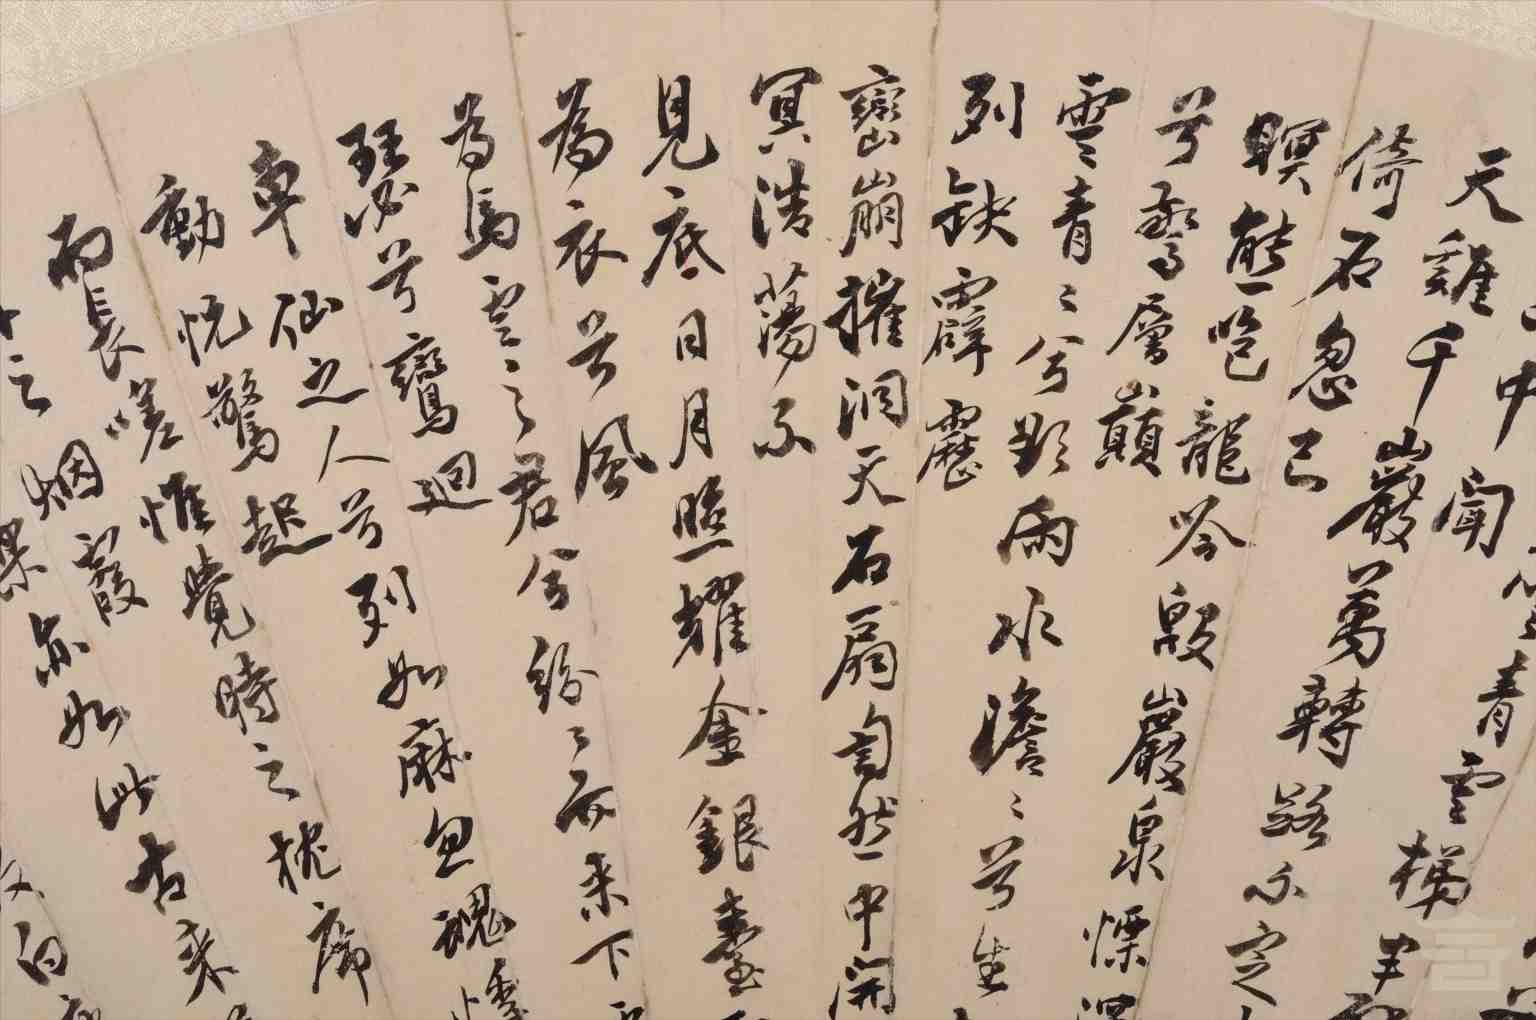 青雲梯半
中聞
天雞千巖萬轉路不定
倚石忽已
暝熊咆龍吟殷巖泉慄深
兮驚層巔
雲青々兮欲雨水澹々兮生
列缺霹靂
巒崩摧洞天石扇訇然中開
冥浩蕩不
見底日月照耀金銀臺
為衣兮風
為馬雲々之君兮紛々而来下
瑟兮鸞迴
車仙之人兮列如麻忽魂悸
動恍驚起
而長嗟惟覺時之枕席
之烟霞
樂亦如此古来